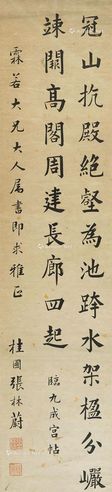 冠山抗殿絕壑為池跨水架楹分巖
竦闕高閣周建長廊四起
臨九成宮帖
霖若大兄大人屬書即求雅正
桂圃張林蔚